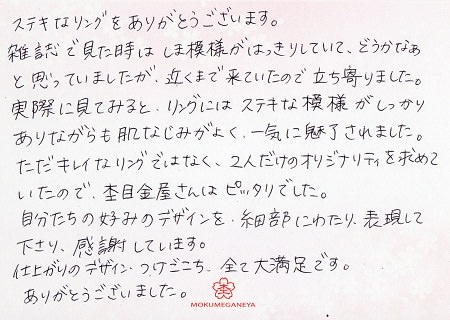 ステキなリングをありがとうございます。
雑誌で見た時は しま模様がはっきりしていて、どうかなぁ
と思っていましたが、近くまで来ていたので立ち寄りました。
実際に見てみると、リングには ステキな模様がしっかり
ありながらも肌なじみがよく、一気に魅了されました。
ただキレイなリングではなく、2人だけのオリジナリティを求めて
いたので、杢目金屋さんはピッタリでした。
自分たちの好みのデザインを、細部にわたり、表現して
下さり、感謝しています。
仕上がりのデザイン・つけごこち、全て大満足です。
ありがとうございました。
MOKUMEGANEYA